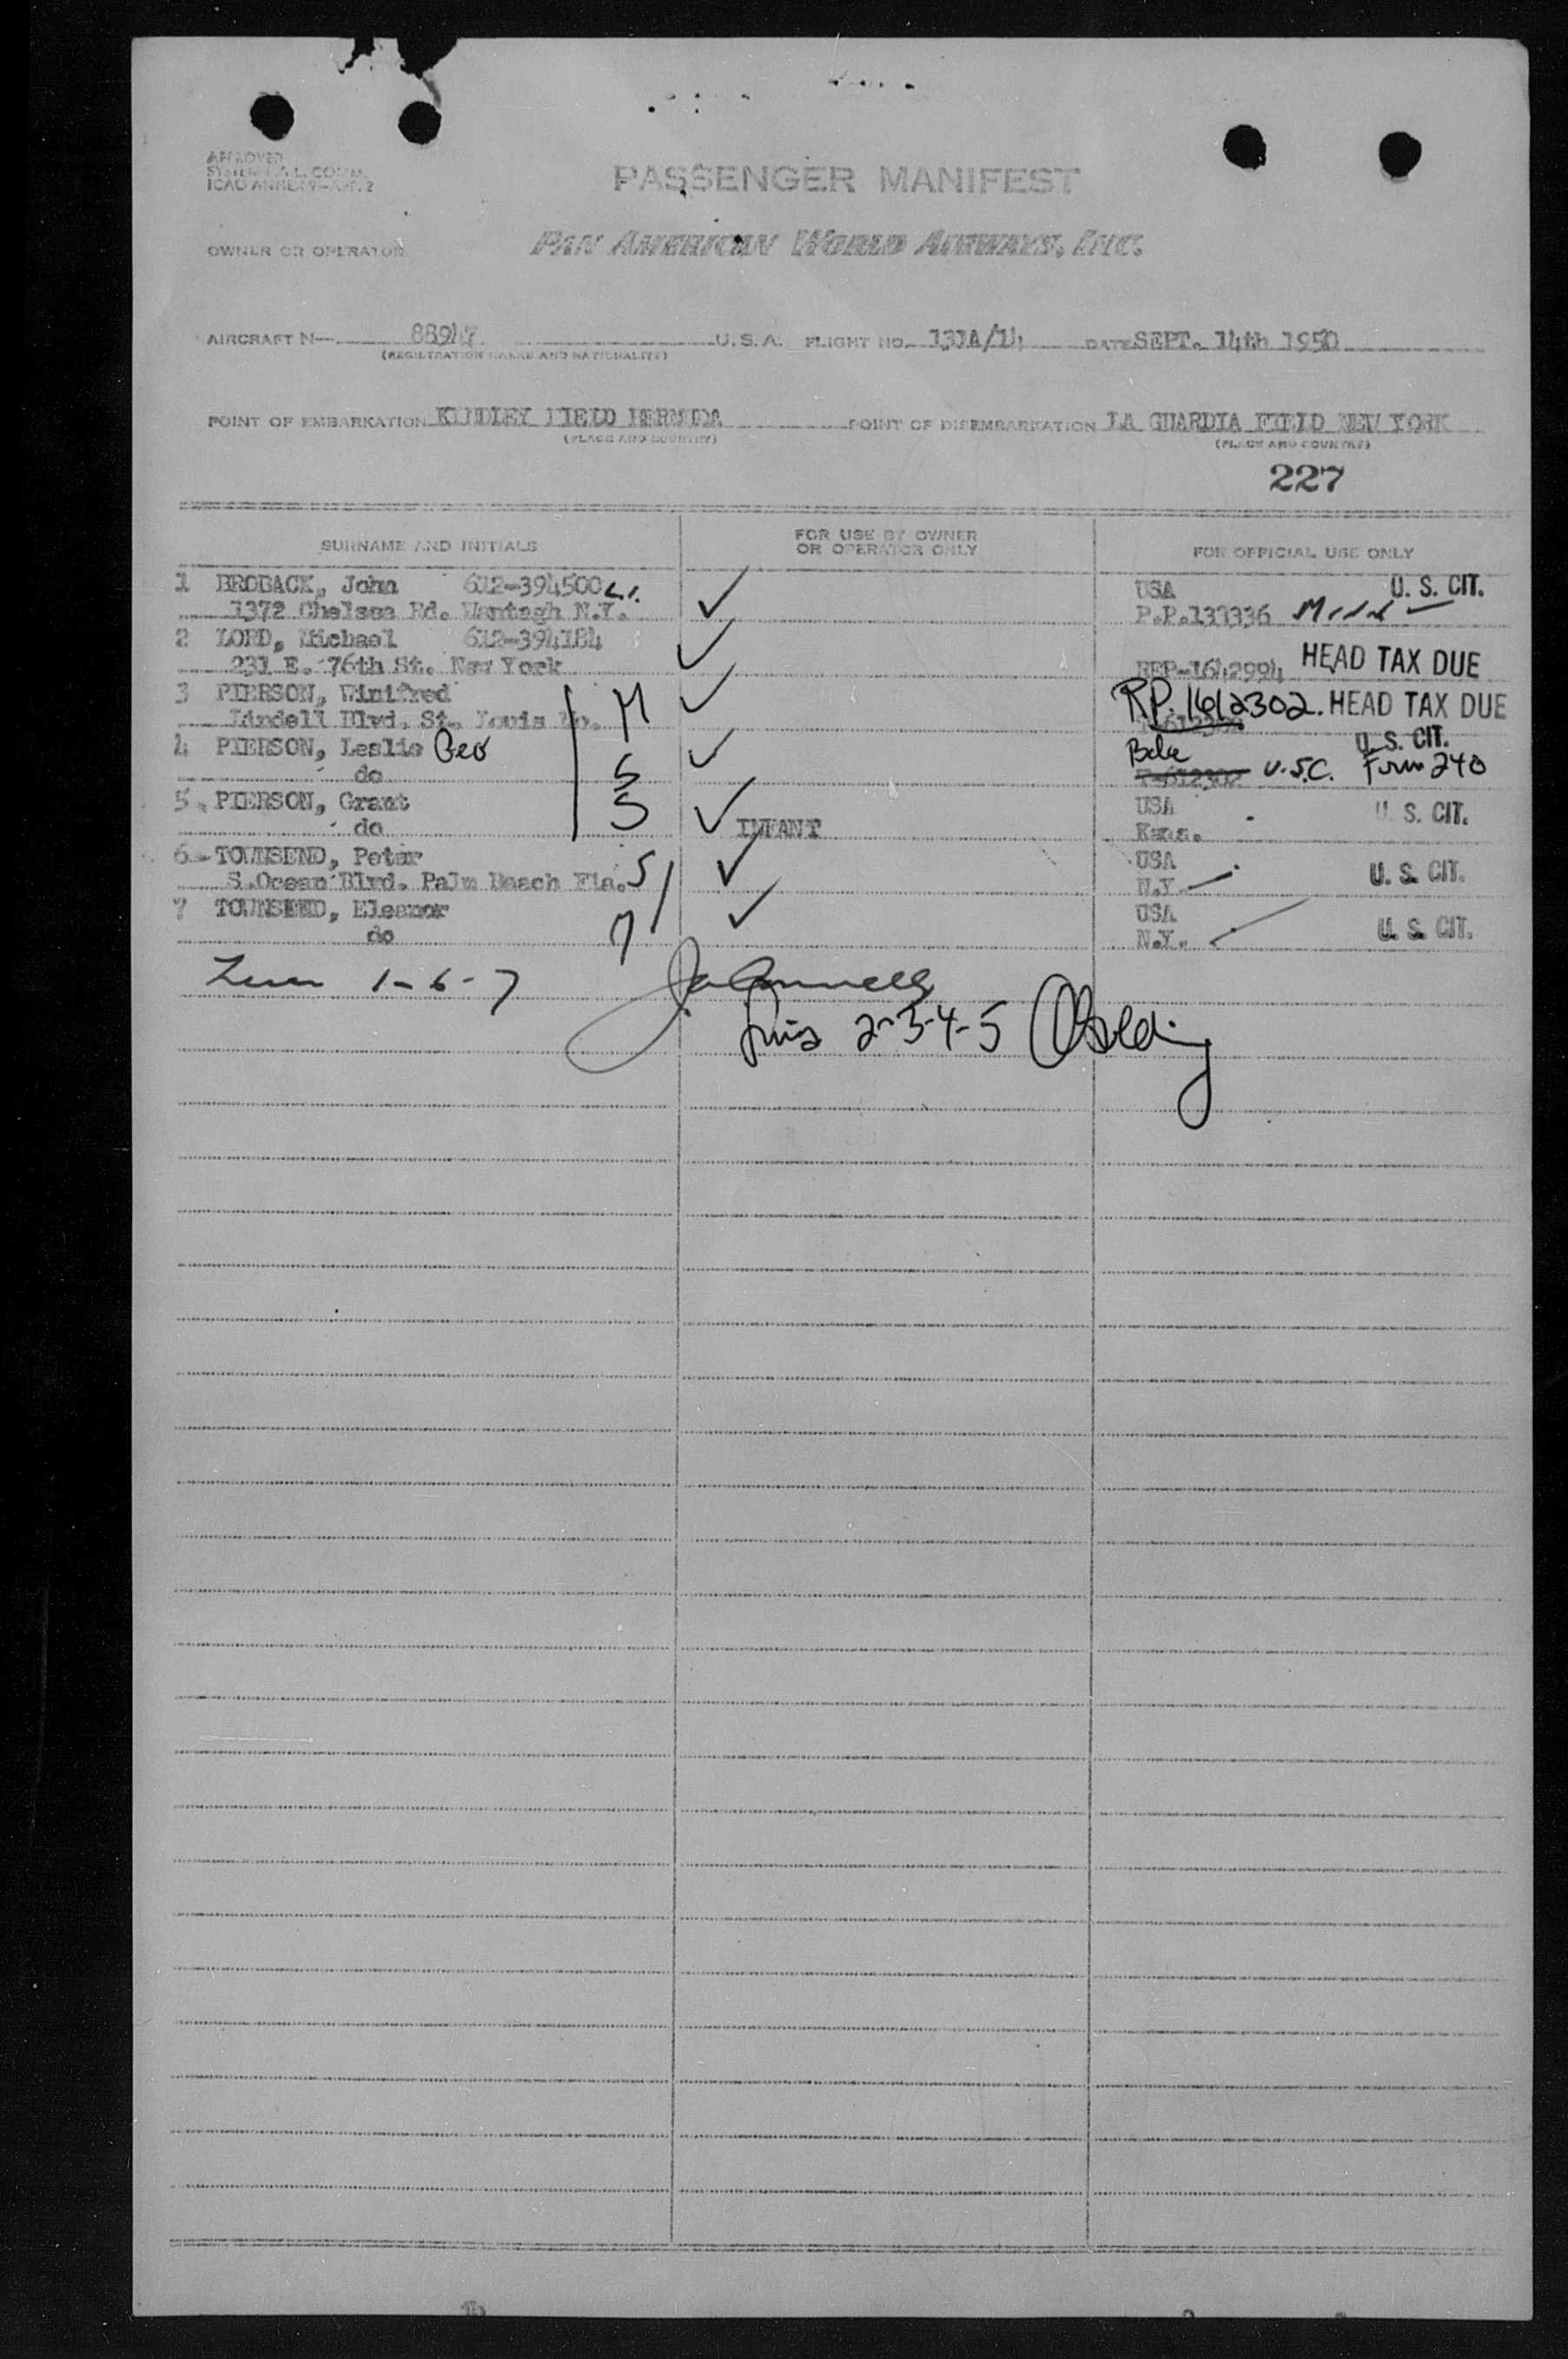 APPROVED
ICAO ANNEX 9-APP. 2
PASSENGER MANIFEST
OWNER OR OPERATOR PAN AMERICAN WORLD AIRWAYS, INC.
AIRCRAFT N— 88947 U.S.A. FLIGHT NO. 131A/14 DATE SEPT. 14th 1950
(REGISTRATION MARKS AND NATIONALITY)
POINT OF EMBARKATION KINDLEY FIELD BERMUDA POINT OF DISEMBARKATION LA GUARDIA FIELD NEW YORK
(PLACE AND COUNTRY) (PLACE AND COUNTRY)
227
SURNAME AND INITIALS FOR USE BY OWNER OR OPERATOR ONLY FOR OFFICIAL USE ONLY
1 BROBACK, John 612-394500 USA U. S. CIT.
1372 Chelsea Rd. Wantagh N.Y. P.P.133336
2 LORD, Michael 612-394184
231 E. 76th St. New York REP-1642994 HEAD TAX DUE
3 PIERSON, Winifred M RP. 1612302. HEAD TAX DUE
Lindell Blvd. St. Louis Mo.
4 PIERSON, Leslie Geo U. S. CIT.
do S U.S.C. Form 240
5 PIERSON, Grant S USA U. S. CIT.
do INFANT Kans.
6 TOWNSEND, Peter S USA U. S. CIT.
S.Ocean Blvd. Palm Beach Fla. N.Y.
7 TOWNSEND, Eleanor M USA U. S. CIT.
do N.Y.
1-6-7
2-3-4-5